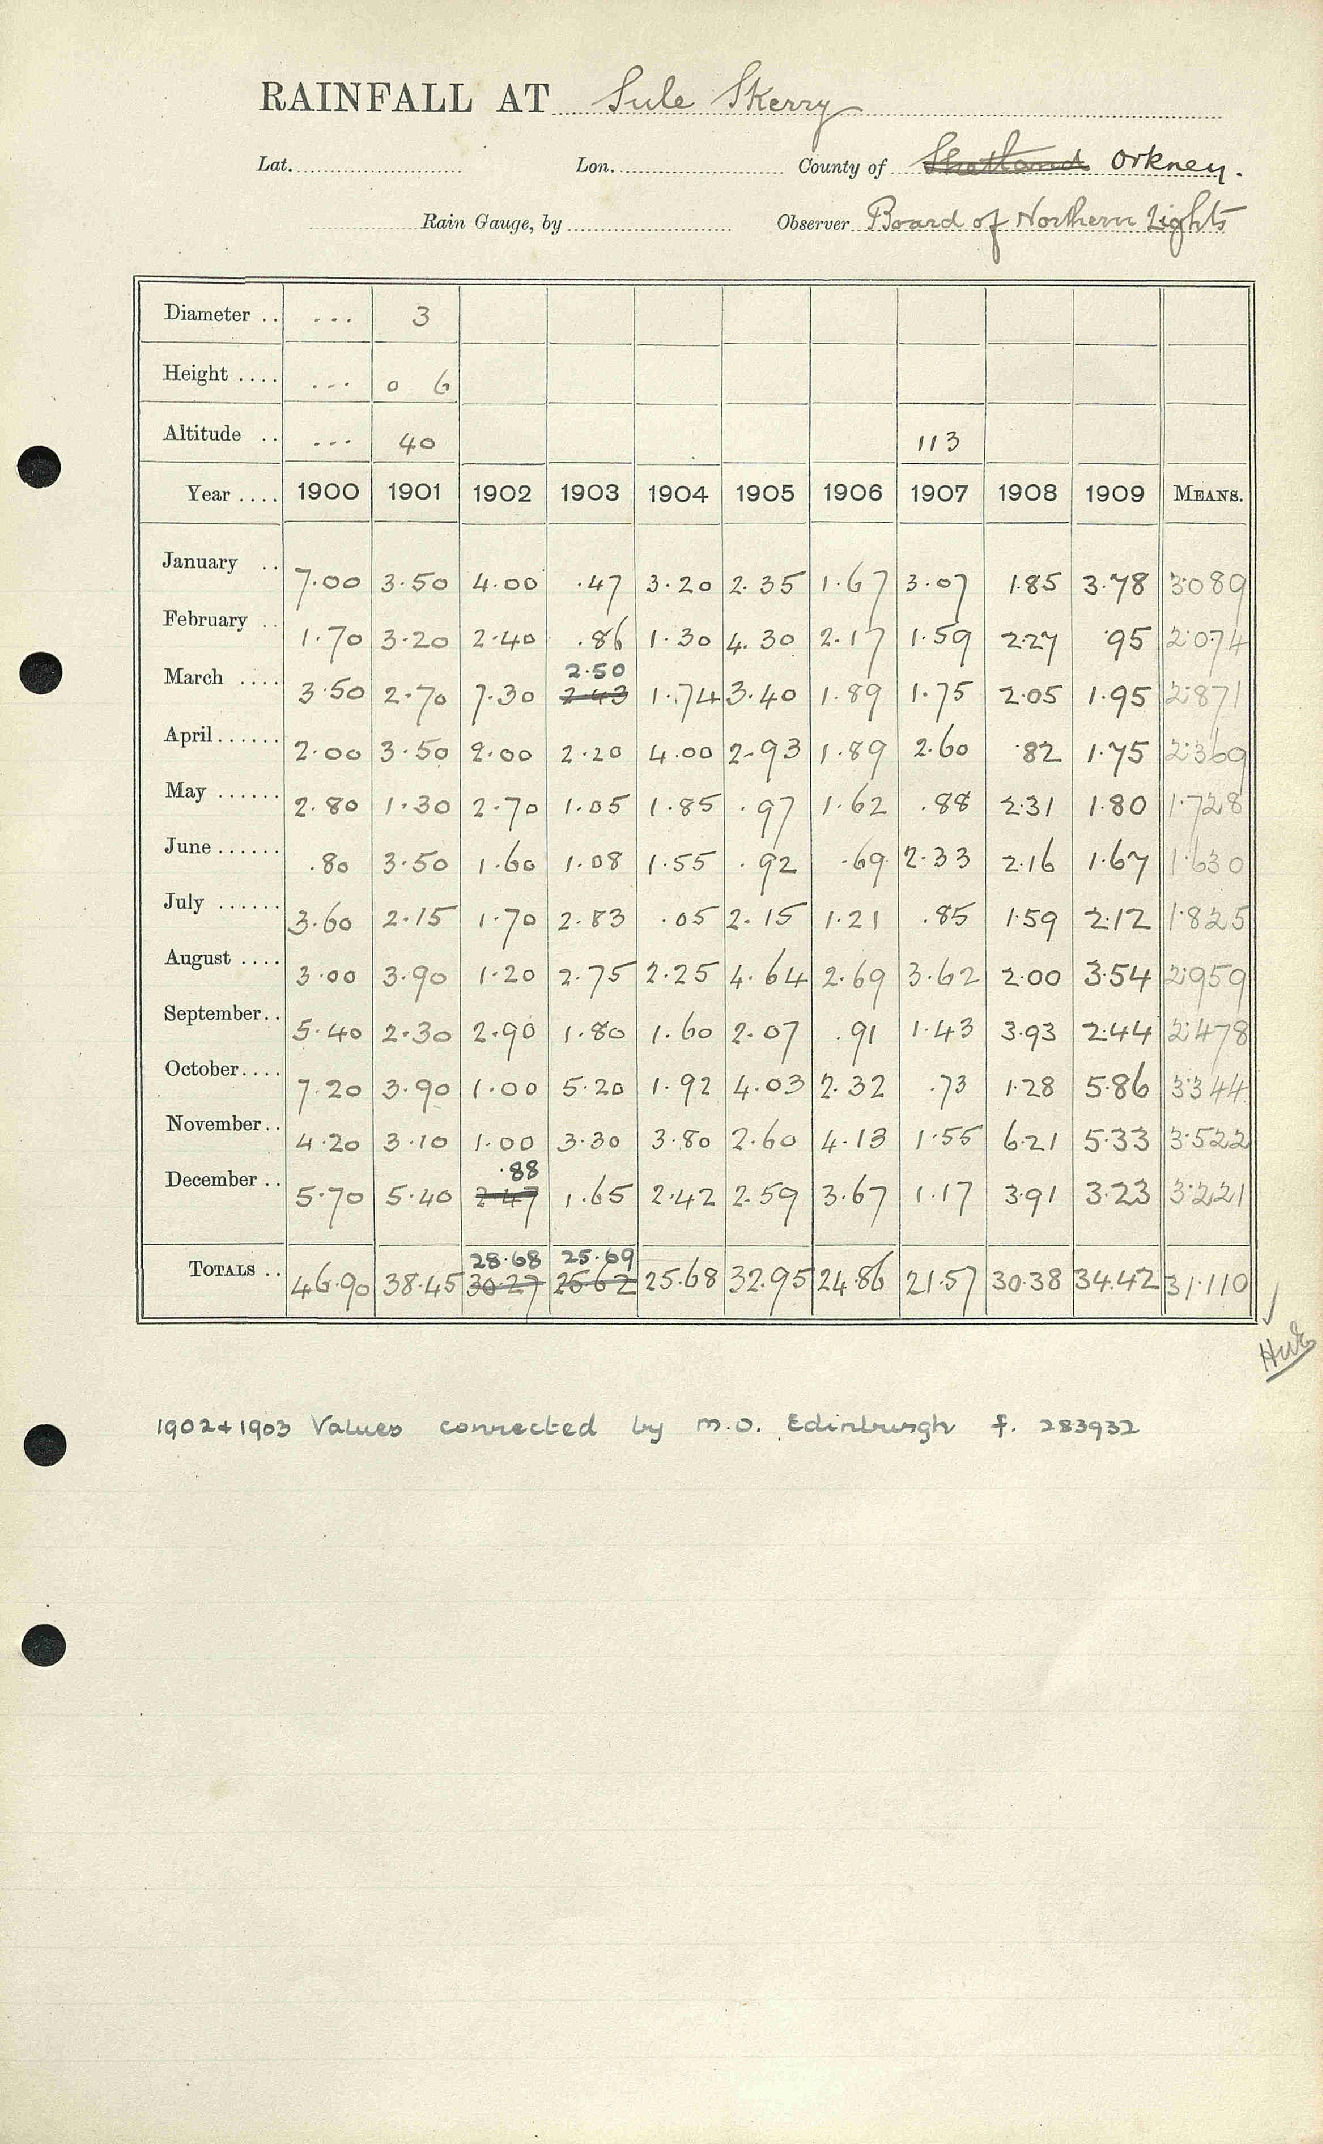 RAINFALL AT Sule Skerry
Lat. Lon. County of Shetland Orkney.
Rain Gauge, by Observer Board of Northern Lights
Diameter .. ... 3
Height .... ... 0 6
Altitude .. ... 40 113
Year .... 1900 1901 1902 1903 1904 1905 1906 1907 1908 1909 MEANS.
January .. 7.00 3.50 4.00 .47 3.20 2.35 1.67 3.07 1.85 3.78 3.089
February .. 1.70 3.20 2.40 .86 1.30 4.30 2.17 1.59 2.27 .95 2.074
2.50
March .... 3.50 2.70 7.30 2.43 1.74 3.40 1.89 1.75 2.05 1.95 2.871
April ...... 2.00 3.50 2.00 2.20 4.00 2.93 1.89 2.60 .82 1.75 2.369
May ...... 2.80 1.30 2.70 1.05 1.85 .97 1.62 .88 2.31 1.80 1.728
June ...... .80 3.50 1.60 1.08 1.55 .92 .69 2.33 2.16 1.67 1.630
July ...... 3.60 2.15 1.70 2.83 .05 2.15 1.21 .85 1.59 2.12 1.825
August .... 3.00 3.90 1.20 2.75 2.25 4.64 2.69 3.62 2.00 3.54 2.959
September .. 5.40 2.30 2.90 1.80 1.60 2.07 .91 1.43 3.93 2.44 2.478
October .... 7.20 3.90 1.00 5.20 1.92 4.03 2.32 .73 1.28 5.86 3.344
November .. 4.20 3.10 1.00 3.30 3.80 2.60 4.13 1.55 6.21 5.33 3.522
.88
December .. 5.70 5.40 2.47 1.65 2.42 2.59 3.67 1.17 3.91 3.23 3.221
28.68 25.69
TOTALS .. 46.90 38.45 30.27 25.62 25.68 32.95 24.86 21.57 30.38 34.42 31.110
1902 + 1903 Values corrected by M.O. Edinburgh f. 283932